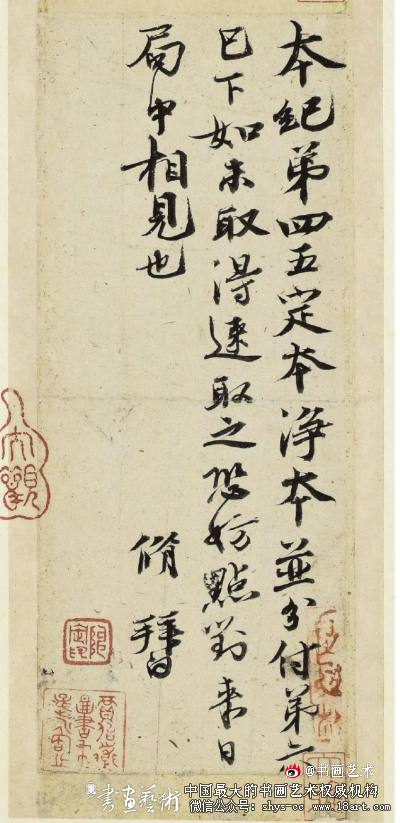 本紀第四五定本淨本並分付第六
已下如未取得速取之恐妨點對來日
局中相見也
脩 拜白
@书画艺术
書畫藝術
中国最大的书画艺术权威机构
微信公众号: shys-cc www.18art.com